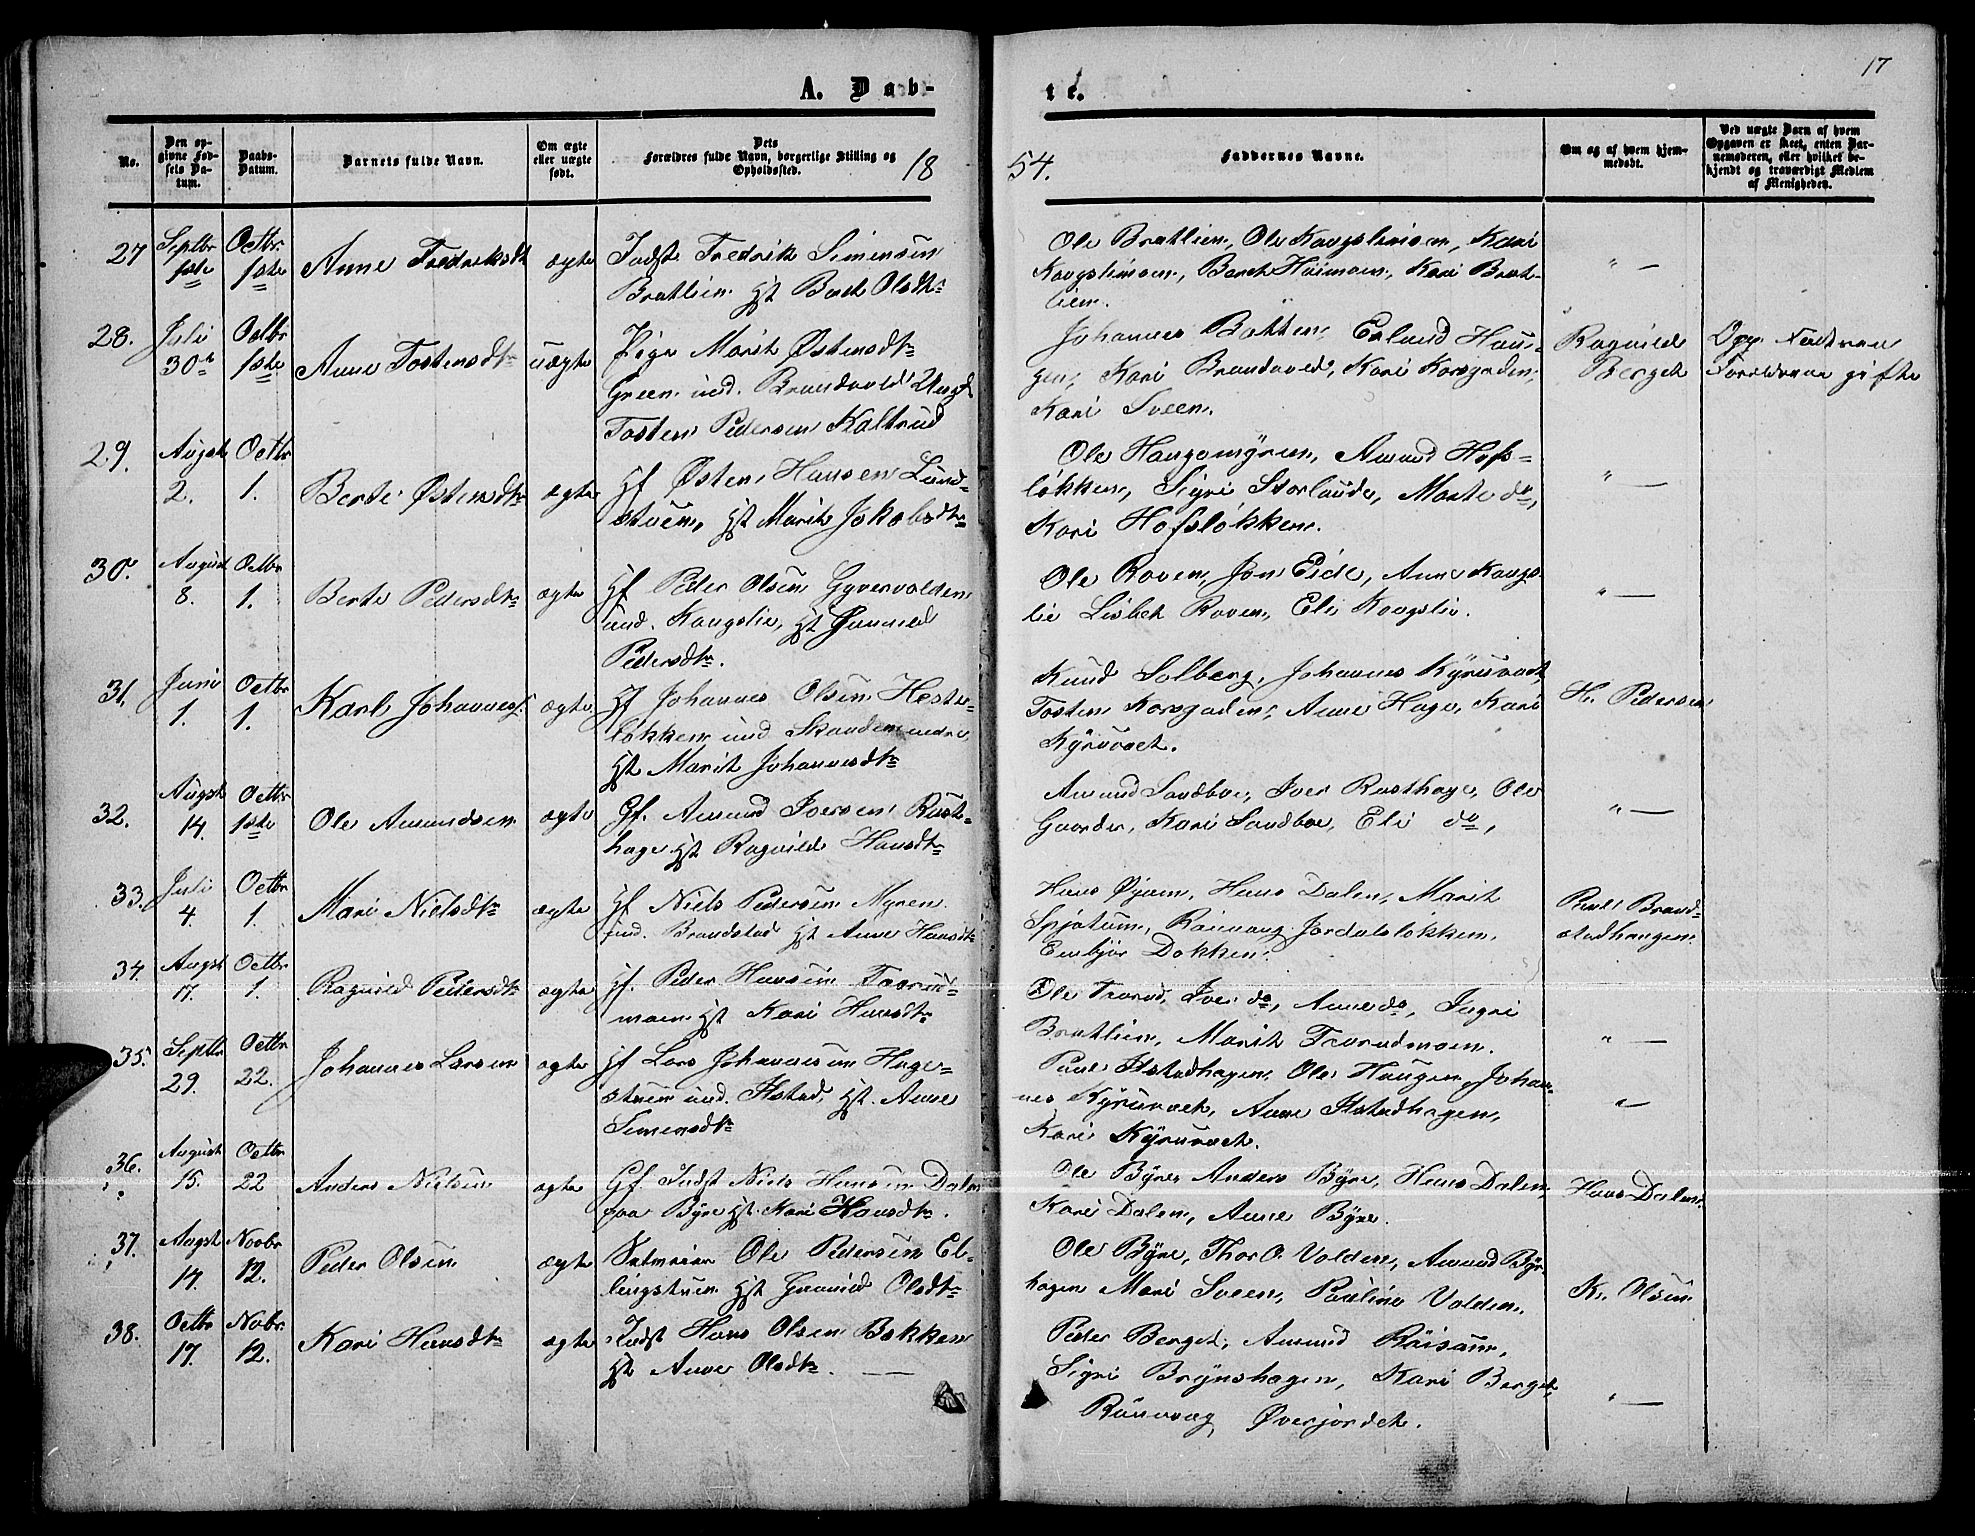 17
A. Dab-
te.
No.
Den op-
givne Fød-
sels Da-
tum.
Daabs-
Datum.
Barnets fulde Navn.
Om ægte
eller uægte
født.
Dets
Forældres fulde Navn, borgerlige Stilling og
Opholdssted.
18
54.
Faddernes Navne.
Om og af hvem hjem-
medøbt.
Ved uægte Barn af hvem
Opgaven er skeet, enten Bar-
nemoderen, eller hvilket be-
kjendt og troværdigt Medlem
af Menigheden.
27 Septbr 1ste Octbr. 1ste Anne Fredriksdt ægte Indst Fredrik Simensen
Bratlien Hst Berit Olsdtr
Ole Bratlien, Ole Kongslimoen, Kari
Kongslimoen, Berit Hiimoen, Kari Brat-
lien.
" —
28. Juli 30te Octbr 1ste Anne Tostensdtr uægte Pige Marit Østensdtr
Green und. Brandvold Ungk
Tosten Pedersen Kaltrud
Johannes Bakken, Erland Hau-
gen, Kari Brandvold, Kari Korsgaden,
Kari Sveen.
Ragnild
Berget
Opg. Fadrene
Forældrene gifte
29. Augst 2. Octbr 1. Berte Østensdtr ægte Hf Østen Hansen Lund-
stuen, Hst Marit Jakobsdtr
Ole Haugomyren, Amund Hofs-
løkken, Sigri Storlaude, Marte do,
Kari Hofsløkken.
" —
30. August 8. Octbr 1. Berte Pedersdtr ægte Hf Peder Olsen Gyvervolden
und. Kongslie, Hst Gunnild
Pedersdtr.
Ole Roven, Jon Eide, Anne Kongs-
lie Lisbet Roven, Eli Kongslie.
" —
31. Juni 1. Octbr 1. Karl Johanness. ægte Hf Johannes Olsen Heste-
løkken und Skanden nedre,
Hst Marit Johannesdtr
Knud Solberg, Johannes Kÿruvæet,
Tosten Korsgaden, Anne Hage, Kari
Kÿruvæet.
H. Pedersen
32. Augst 14. Octbr 1ste Ole Amundsen ægte Gf. Amund Iversen Rust-
hage Hst Ragnild Hansdtr
Amund Sandboe, Iver Rusthage, Ole
Gaarder, Kari Sandboe, Eli do,
" —
33. Juli 4. Octbr 1. Mari Nielsdtr ægte Hf Niels Pedersen Myren
und. Brandstad Hst Anne Hansdtr
Hans Øÿom, Hans Dalen, Marit
Spjotum, Rønnaug Jordalsløkken,
Embjør Dokken.
Poul Brand-
stadhaugen
34. Augst 17. Octbr 1. Ragnild Pedersdtr ægte Hf. Peder Hansen Taarud-
moen Hst Kari Hansdtr
Ole Trarud, Iver do, Anne do, Ingri
Bratlien, Marit Traarudmoen.
" —
35. Septbr 29. Octbr 22. Johannes Larsen ægte Hf Lars Johannesen Hage-
stuen und. Ilstad, Hst. Anne
Simensdtr
Poul Ilstadhagen, Ole Haugen, Johan-
nes Kÿruvæet, Anne Ilstadhagen,
Kari Kÿruvæet.
" —
36. August 15. Octbr 22 Anders Nielsen ægte Gf. Indst Niels Hansen Dalen
paa Bÿre Hst. Kari Hansdtr.
Ole Bÿre Anders Bÿre, Hans Dalen,
Kari Dalen, Anne Bÿre.
Hans Dalen.
37. Augst 14. Novbr 12. Peder Olsen ægte Ole Pedersen El-
lingstuen Hst Gunnild Olsdtr
Ole Bÿre, Thor O. Volden, Amund Bÿr-
hagen Mari Sveen, Pauline Volden,
K. Olsen
38. Octbr 17. Novbr. 12. Kari Hansdtr ægte Indst Hans Olsen Bakken
Hst Anne Olsdtr. —
Peder Berget, Amund Røisum,
Sigri Brÿnshagen, Kari Berget,
Rønnaug Øverjordet.
" —